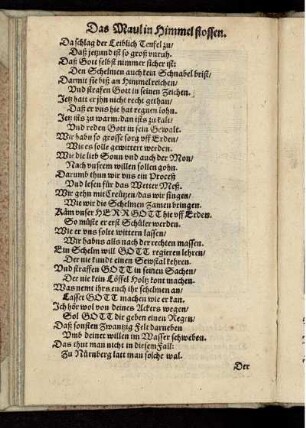 Das Maul in Himmel stossen.
Da schlag der Leiblich Teufel zu/
Daß jetzund ist so groß vnruh.
Daß Gott selbst nimmer sicher ist:
Den Schelmen auch kein Schnabel brist/
Darmit sie biß an Himmel reichen/
Vnd straffen Gott in seinen Zeichen.
Jetz hatt er jhn nicht recht gethan/
Daß er vns hie hat regnen lohn.
Jez ists zu warm/dan ists zu kalt/
Vnd reden Gott in sein Gewalt.
Wir habn so grosse sorg vff Erden/
Wie es solle gewittert werden.
Wie die lieb Sonn vnd auch der Mon/
Nach vnserm willen sollen gohn.
Darumb thun wir vns ein Proceß
Vnd lesen für das Wetter Meß.
Wir gehn mit Creützen/das wir singen/
Wie wir die Schelmen Zamen bringen.
Käm vnser HERRGOTT hie vff Erden.
So müste er erst Schüler werden.
Wie er vns solte wittern lassen/
Wir habns alls nach der rechten massen.
Ein Schelm will GOTT regieren lehren/
Der nie kundt einen Sewstal kehren.
Vnd straffen GOTT in seinen Sachen/
Der nie kein Löffel Holtz kont machen.
Was nemt jhrs euch jhr schelmen an/
Lasset GOTT machen wie er kan.
Ich hör wol von deines Ackers wegen/
Sol GOTT dir geben einen Regen/
Daß sonsten Zwantzig Felt darneben
Vmb deinet willen im Wasser schweben.
Das thut man nicht in diesem Fall:
Zu Nürnberg latt man solche wal.
Der